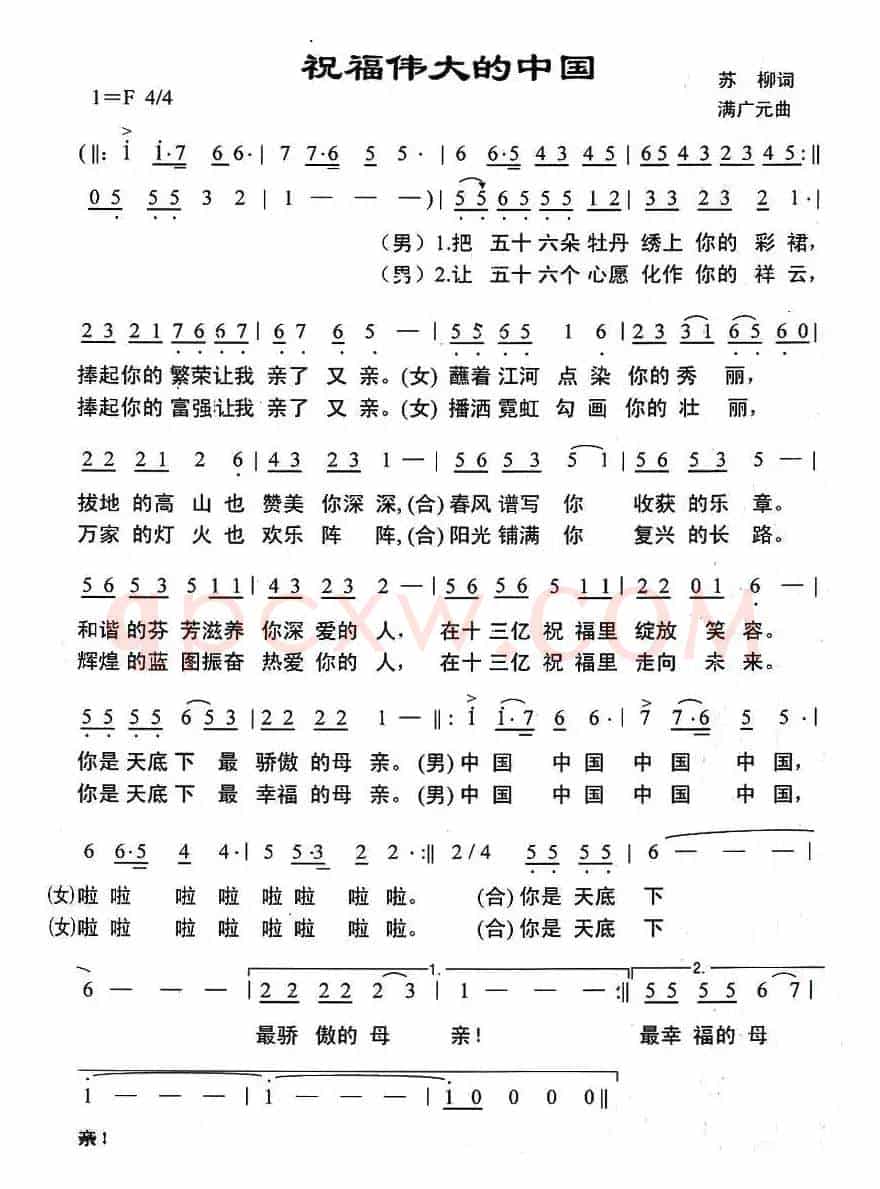 祝福伟大的中国
1=F 4/4
苏 柳词
满广元曲
(‖: i i·7 6 6· | 7 7·6 5 5· | 6 6·5 43 45 | 65 43 23 45 :‖
05 55 3 2 | 1 — — —)| 55 65 55 12 | 33 23 2 1· |
(男) 1.把 五十六朵 牡丹 绣上 你的 彩裙,
(男) 2.让 五十六个 心愿 化作 你的 祥云,
23 21 76 67 | 67 6 5 — | 55 65 1 6 | 23 31 65 60 |
捧起你的 繁荣让我 亲了 又 亲。(女) 蘸着 江河 点 染 你的 秀 丽,
捧起你的 富强让我 亲了 又 亲。(女) 播洒 霓虹 勾 画 你的 壮 丽,
22 21 2 6 | 43 23 1 — | 56 53 5 1 | 56 53 5 — |
拔地 的高 山 也 赞美 你深 深,(合) 春风 谱写 你 收获 的乐 章。
万家 的灯 火 也 欢乐 阵 阵,(合) 阳光 铺满 你 复兴 的长 路。
56 53 511 | 43 23 2 — | 56 56 5 11 | 22 01 6 — |
qpcxw.COM
和谐 的芬 芳滋养 你深 爱的 人, 在十 三亿 祝 福里 绽放 笑 容。
辉煌 的蓝 图振奋 热爱 你的 人, 在十 三亿 祝 福里 走向 未 来。
55 55 6 53 | 22 22 1 — ‖: i i·7 6 6· | 7 7·6 5 5· |
你是 天底 下 最 骄傲 的母 亲。(男) 中 国 中 国 中 国 中 国,
你是 天底 下 最 幸福 的母 亲。(男) 中 国 中 国 中 国 中 国,
6 6·5 4 4· | 5 5·3 2 2· :‖ 2/4 55 55 | 6 — — — |
(女) 啦 啦 啦 啦 啦 啦 啦 啦。 (合) 你是 天底 下
(女) 啦 啦 啦 啦 啦 啦 啦 啦。 (合) 你是 天底 下
1. 2.
6 — — — | 22 22 2 3 | 1 — — :‖ 55 55 6 7 |
最骄 傲的 母 亲! 最幸 福的 母
i — — — | i — — — | i0 0 0 0 ‖
亲!